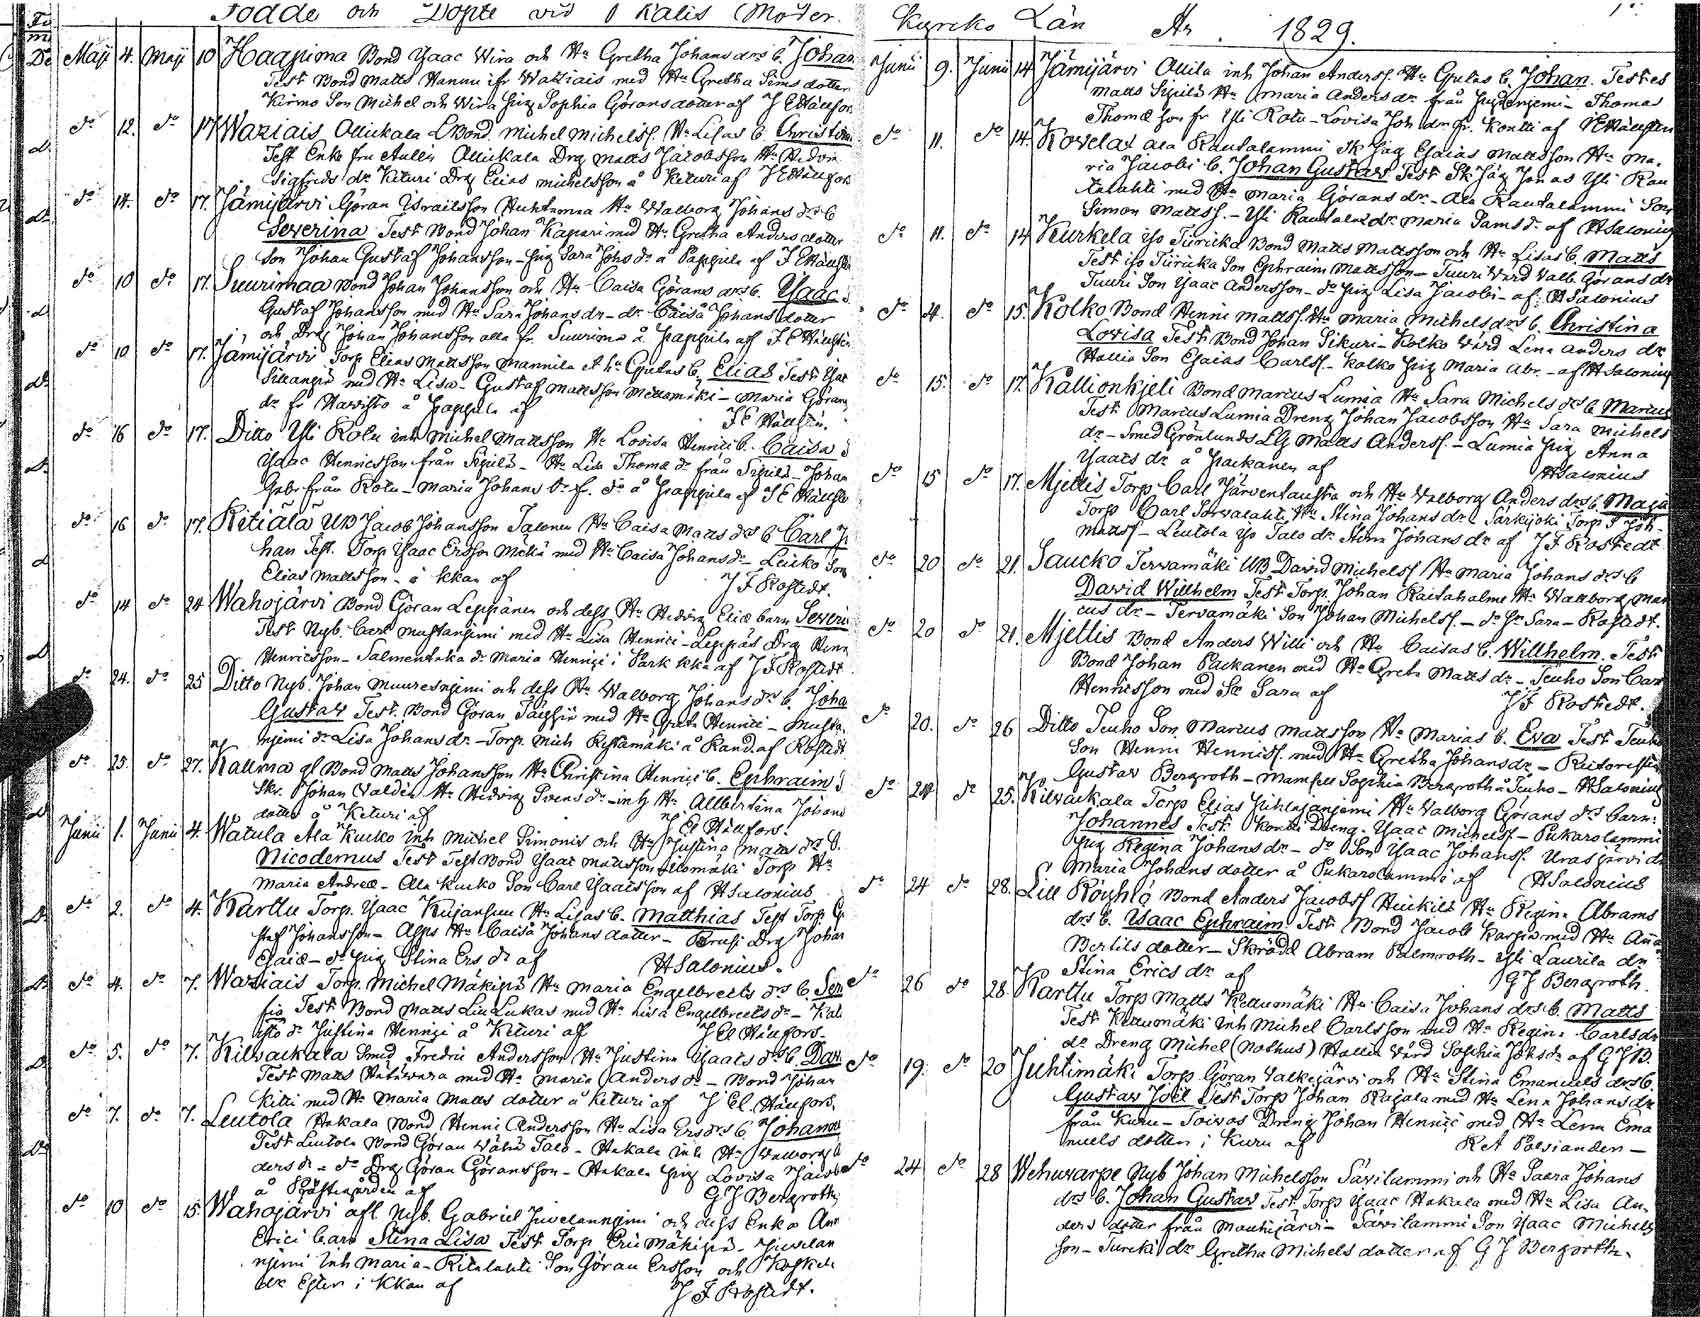 Födde och Döpte vid Ikalis Moder
Maji 4. Maji 10 Haapima Bond Ysaac Wira och Hu Gretha Johans drs b. Johan
Test Bond Matts Hannu ifr Watziais med Hu Gretha Sims dotter
Kirmo Son Michel och Wira pig Sophia Görans dotter af J E Hällfors
do 12. do 17 Waziais Ollickala Bond Michel Michelss. Hu Lisas b. Christina
Test Enke fru Aulin Ollickala Drg Matts Jacobsson Hu Hedvi
Sigfrids dr Kituri Drg Elias Michelsson å Kituri af J E Hällfors
do 14. do 17. Jämijärvi Göran Israelsson Huhtamaa Hu Walborg Johans drs b
Severina Test Bond Johan Kaperi med Hu Gretha Anders dotter
Son Johan Gustaf Johansson - pig Sara Johs dr å Pappila af J E Hällfors
do 10 do 17. Suurimaa Bond Johan Johansson och Hu Caisa Görans drs b. Ysaac
Gustaf Johansson med Hu Sara Johans dr - dr Caisa Johans dotter
och Drg Johan Johansson alla fr Suurima å Pappila af J E Hällfors
do 10 do 17. Jämijärvi Torp Elias Mattsson Mannila et hu Gretas b. Elias Test
Sillangin med Hu Lisa - Gustaf Mattsson Mettämäki - Maria Görans
dr fr Harristo å Pappila af J E Hällfors.
do 16 do 17. Ditto Yli Rotu inh Michel Mattsson Hu Lovisa Henrici b. Caisa
Ysaac Henricsson från Sipilä - Hu Lisa Thomæ dr från Sipilä - Johan
Gabr från Rotu - Maria Johans dr f. do å Pappila af J E Hällfors
do 16 do 17. Kitiälä UB Jacob Johansson Talonen Hu Caisa Matts drs b Carl Jo
han Test. Torp Ysaac Ersson Mäki med Hu Caisa Johans dr - Leicko Son
Elias Mattsson - å kkan af J F Rostedt.
do 14 do 24 Wahojärvi Bond Göran Leppänen och dess Hu Hedvig Eliæ barn Severi
Test Nyb. Carl Mustaniemi med Hu Lisa Henrici - Leppäs Drg Henr
Henricsson - Salmentaka dr Maria Henrici i Park kka af J F Rostedt
do 24. do 25 Ditto Nyb. Johan Muuresniemi och dess Hu Walborg Johans drs b. Joha
Gustav Test. Bond Göran Täcktin med Hu Greta Henrici - Musta
niemi dr Lisa Johans dr - Torp. Mich Rystämäki å Rand. af Rostedt
do 25. do 27. Kauma gl Bond Matts Johansson Hu Christina Henrici b. Ephraim
Skr. Johan Valdén Hu Hedvig Svens dr - inh Hu Albertina Johans
dotter å Kituri af J El Hällfors.
Junii 1. Junii 4. Watula Ala Kuiko Inh Michel Simonis och Hu Justina Matts dr b.
Nicodemus Test Test Bond Ysaac Mattsson Illomäki Torp Hu
Maria Andreæ - Ala Kuiko Son Carl Ysaacsson af H Salonius
do 2. do 4. Karttu Torp. Ysaac Kujansuu Hu Lisas b. Matthias Test Torp. G
staf Johansson - Alps Hu Caisa Johans dotter - Prusi Drg Johan
Esaiæ - do pig Stina Ers dr af H Salonius.
do 4. do 7. Waziais Torp. Michel Mäkipää Hu Maria Engelbrects drs b. Sera
fia Test Bond Matts Liu Lukas med Hu Lisa Engelbrects dr - Kal
isto dr Justina Henrici å Kituri af J El Hällfors.
do 5. do 7. Kilvackala Smed Fredric Andersson Hu Justina Ysaacs drs b. Dav
Test Matts Hätävara med Hu Maria Anders dr - Bond Johan
Kitti med Hu Maria Matts dotter å Kituri af J El. Hällfors.
do 7. do 7. Leutola Hakala Bond Henric Andersson Hu Lisa Ers drs b. Johannes
Test Leutola Bond Göran Wähä Talo - Hakala inh Hu Walborg
ders dr - do Drg Göran Göransson - Hakala pig Lovisa Jacobs
å Prästegården af G J Bergroth
do 10 do 15 Wahojärvi afl. Nyb. Gabriel Juvelanniemi och dess Enka An
Erici barn Stina Lisa Test Torp Eric Mäkipää - Juvelan
niemi Inh Maria - Ritalahti Son Göran Ersson och Koskela
dr Ester i kkan af J F Rostedt.
Kyrcko Län År. 1829.
Junii 9. Junii 14 Jämijärvi Ollila inh Johan Anderss. Hu Gretas b. Johan. Testes
Matts Sipilä Hu Maria Anders dr från Juhtenniemi - Thomas
Thomæ Son fr Yli Rotu - Lovisa Joh dr fr. Kontti af J E Hällfors
do 11. do 14. Kovelax ala Rautalammi Sk Jäg Esaias Mattsson Hu Ma-
ria Jacobi b. Johan Gustav Test Sk Jäg Jonas Yli Rau
talahti med Hu Maria Görans dr - Ala Rautalammi Son
Simon Mattss. - Yli Rautalax dr Maria Sams dr af H Salonius
do 11. do 14 Kurkela iso Türicka Bond Matts Mattsson och Hu Lisas b. Matts
Test iso Türicka Son Ephraim Mattsson - Tuuri Wärd Walb. Görans dr
Tuuri Son Ysaac Andersson - do pig Lisa Jacobi - af H Salonius
do 4. do 15. Kolko Bond Henric Mattss. Hu Maria Michels drs b. Christina
Lovisa Test Bond Johan Sikuri - Kolko Wärd Lena Anders dr
Hallia Son Esaias Carlss. - Kolko pig Maria Abr. - af H Salonius
do 15. do 17. Kallionkjeli Bond Marcus Lumia Hu Sara Michels drs b Marcus
Test Marcus Lumia Dreng Johan Jacobsson Hu Sara Michels
dr - Smed Grönlunds Lg Matts Anderss. - Lumia pig Anna
Ysaacs dr å Packanen af H Salonius
do 15 do 17. Mjettis Torp Carl Järventausta och Hu Walborg Anders drs b. Maja
Torp Carl Sorvalahti Hu Stina Johans dr - Särkijoki Torp S Joh-
Mattss - Leutola iso Talo dr Anna Johans dr af J F Rostedt
do 20 do 21. Saucko Tervamäki UB David Michelss Hu Maria Johans drs b
David Willhelm Test Torp. Johan Raitahalme Hu Wallborg Mar
cus dr - Tervamäki Son Johan Michelss. - do Sr Sara - Rostedt.
do 20 do 21. Mjettis Bond Anders Willi och Hu Caisas b. Willhelm. Test
Bond Johan Packanen med Hu Greta Matts dr - Teuho Son Carl
Henricsson med Sr Sara af J F Rostedt.
do 20. do 26 Ditto Teuho Son Marcus Mattsson Hu Marias b. Eva Test Teuho
Son Henric Henricss. med Hu Gretha Johans dr - Rusthor
Gustav Bergroth - Mamsell Sophia Bergroth å Teuho - H Salonius
do 24 do 25. Kilvackala Torp Elias Juhlaganiemi Hu Walborg Görans drs barn:
Johannes Test. Kontti Dreng. Ysaac Michelss - Pukarolammi
pig Regina Johans dr - do Son Ysaac Johanss. Urasjärvi dr
Maria Johans dotter å Pukarolammi af H Salonius
do 24 do 28. Lill Röyhiö Bond Anders Jacobss Heickilä Hu Regina Abrams
drs b. Ysaac Ephraim Test Bond Jacob Karpin med Hu Anna
Bertils dotter - Skrädd Abram Palmroth - Yli Laurila dr
Stina Erics dr af G J Bergroth.
do 26 do 28. Karttu Torp Matts Kettumäki Hu Caisa Johans drs b. Matts
Test Kettumäki Inh Michel Carlsson med Hu Regina Carls dr
dr Dreng Michel (Nothus) Hallia Wärd Sophia Johs dr af G J B.
do 19. do 20 Juhtimäki Torp Göran Valkejärvi och Hu Stina Emanuels drs b.
Gustav Joel Test Torp Johan Rajala med Hu Lena Johans dr
från Kuru - Toivos Dreng Johan Henrici med Hu Lena Ema
nuels dotter i Kuru af K A Polviander -
do 24 do 28 Wehuvarpe Nyb Johan Michelsson Särilammi och Hu Saara Johans
drs b. Johan Gustav Test Torp Ysaac Hakala med Hu Lisa An-
ders dotter från Mauhijärvi - Särilammi Son Ysaac Michels
son - Turcki dr Gretha Michels dotter af G J Bergroth.